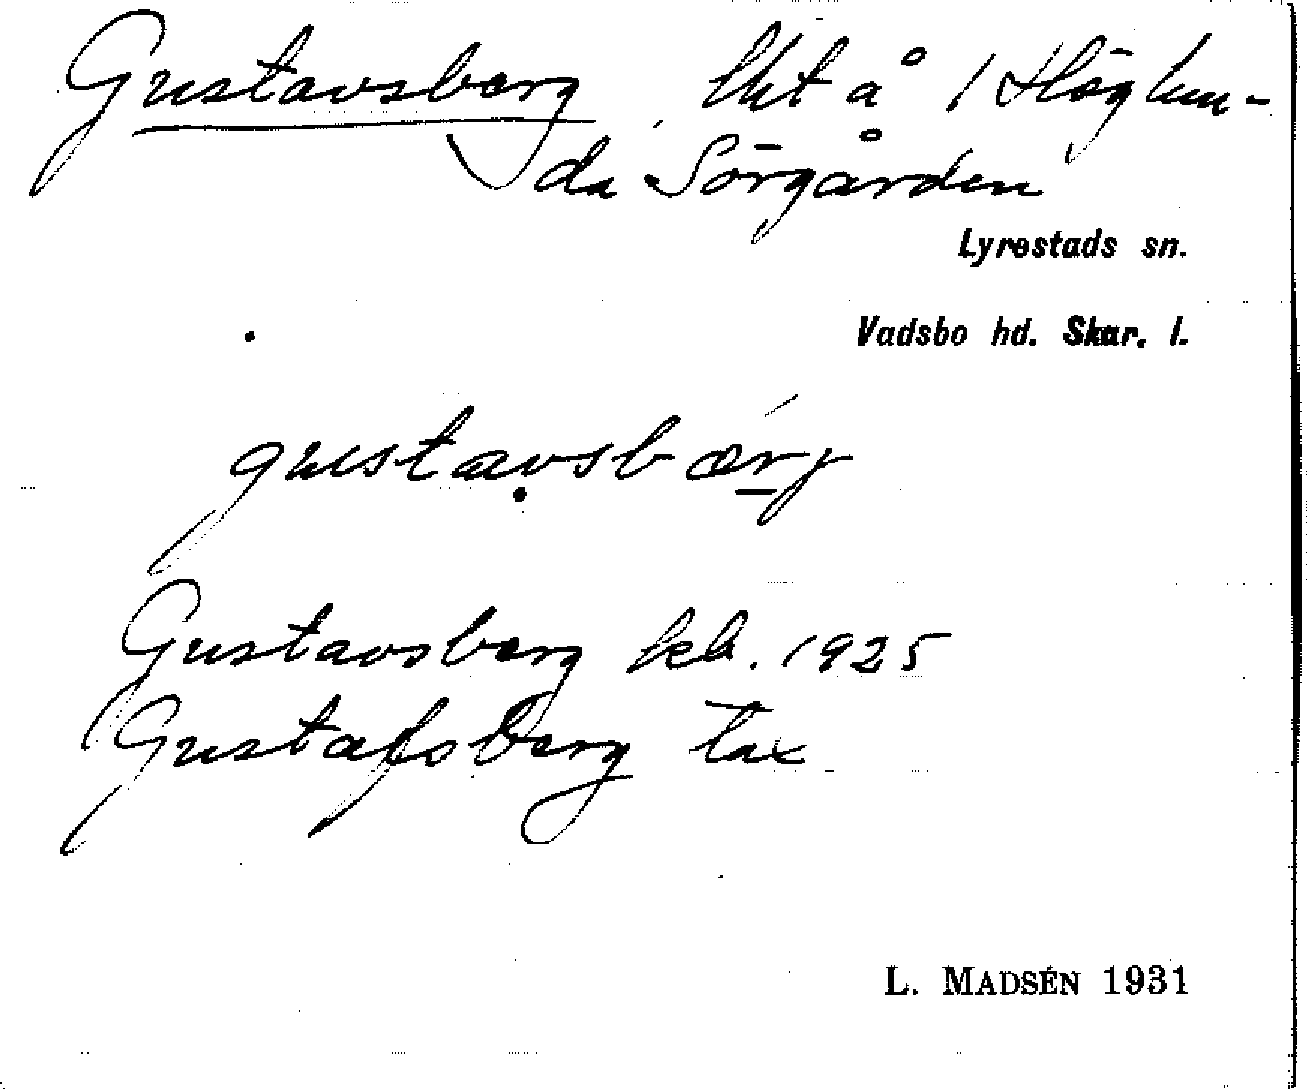 Gustavsberg, lht å 1 Höglun-
da Sörgården
Lyrestads sn.
Vadsbo hd. Skar. l.
gustavsbærj
Gustavsberg kb. 1925
Gustafsberg tax
L. MADSÉN 1931